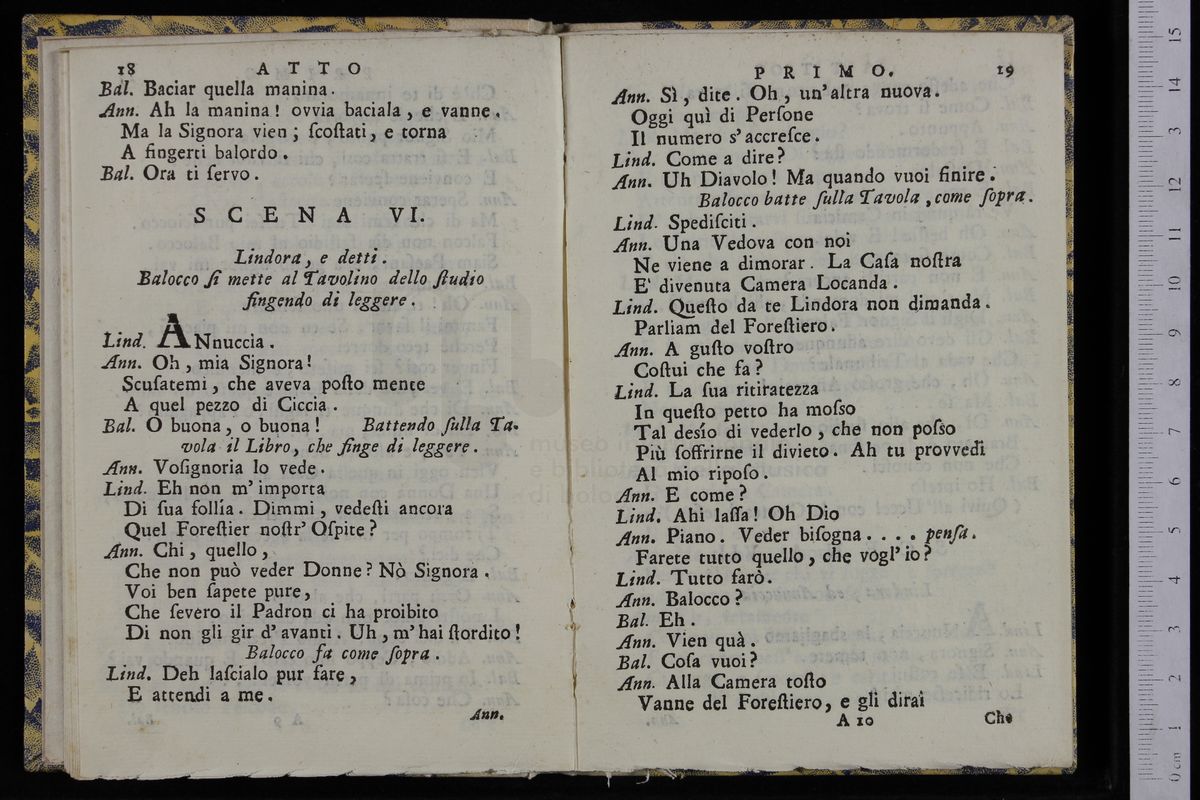 18 ATTO
Bal. Baciar quella manina.
Ann. Ah la manina! ovvia baciala, e vanne.
Ma la Signora vien; ſcoſtati, e torna
A fingerti balordo.
Bal. Ora ti ſervo.
SCENA VI.
Lindora, e detti.
Balocco ſi mette al Tavolino dello ſtudio
fingendo di leggere.
Lind. ANnuccia.
Ann. Oh, mia Signora!
Scuſatemi, che aveva poſto mente
A quel pezzo di Ciccia.
Bal. O buona, o buona! Battendo ſulla Ta-
vola il Libro, che finge di leggere.
Ann. Voſignoria lo vede.
Lind. Eh non m' importa
Di ſua follía. Dimmi, vedeſti ancora
Quel Foreſtier noſtr' Oſpite?
Ann. Chi, quello,
Che non può veder Donne? Nò Signora.
Voi ben ſapete pure,
Che ſevero il Padron ci ha proibito
Di non gli gir d' avanti. Uh, m' hai ſtordito!
Balocco fa come ſopra.
Lind. Deh laſcialo pur fare,
E attendi a me.
Ann.
PRIMO. 19
Ann. Sì, dite. Oh, un' altra nuova.
Oggi quì di Perſone
Il numero s' accreſce.
Lind. Come a dire?
Ann. Uh Diavolo! Ma quando vuoi finire.
Balocco batte ſulla Tavola, come ſopra.
Lind. Spediſciti.
Ann. Una Vedova con noi
Ne viene a dimorar. La Caſa noſtra
E' divenuta Camera Locanda.
Lind. Queſto da te Lindora non dimanda.
Parliam del Foreſtiero.
Ann. A guſto voſtro
Coſtui che fa?
Lind. La ſua ritiratezza
In queſto petto ha moſſo
Tal desío di vederlo, che non poſſo
Più ſoffrirne il divieto. Ah tu provvedi
Al mio ripoſo.
Ann. E come?
Lind. Ahi laſſa! Oh Dio
Ann. Piano. Veder biſogna.... penſa.
Farete tutto quello, che vogl' io?
Lind. Tutto farò.
Ann. Balocco?
Bal. Eh.
Ann. Vien quà.
Bal. Coſa vuoi?
Ann. Alla Camera toſto
Vanne del Foreſtiero, e gli dirai
A 10 Che